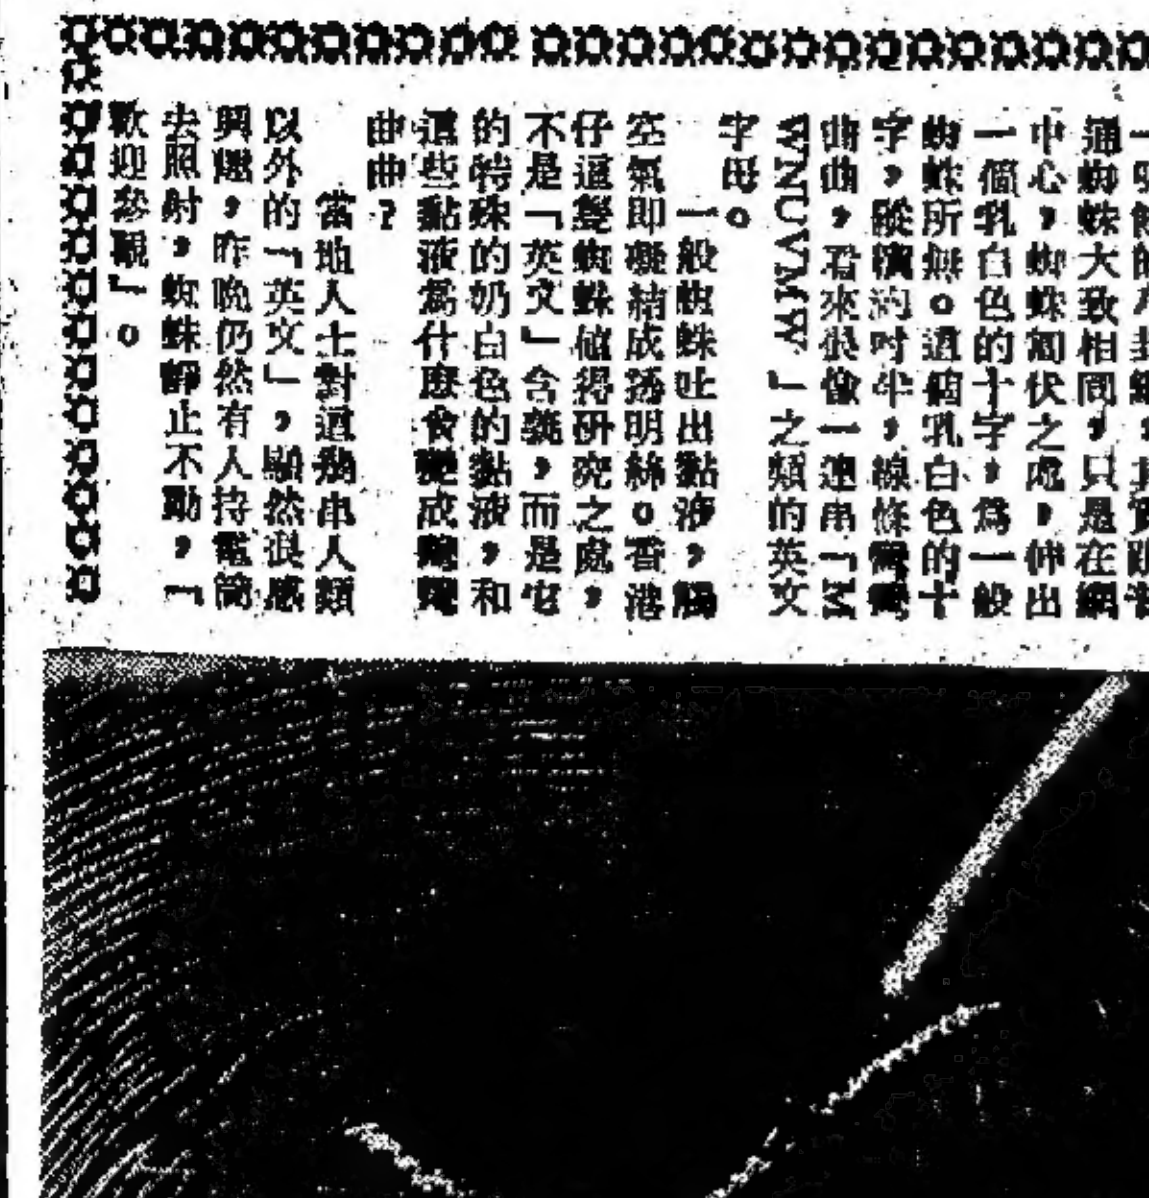 通蜘蛛大致相同，只是在網
中心，蜘蛛匍伏之處，伸出
一個乳白色的十字，為一般
蜘蛛所無。這個乳白色的十
字，縱橫約吋半，線條彎彎
曲曲，看來很像一連串「M
WNUVMW」之類的英文
字母。
一般蜘蛛吐出黏液，觸
空氣即凝結成透明絲。香港
仔這隻蜘蛛值得研究之處，
不是「英文」含義，而是它
的特殊的奶白色的黏液，和
這些黏液為什麼會變成彎彎
曲曲？
當地人士對這個串人類
以外的「英文」，顯然很感
興趣，昨晚仍然有人持電筒
去照射，蜘蛛靜止不動，「
歡迎參觀」。